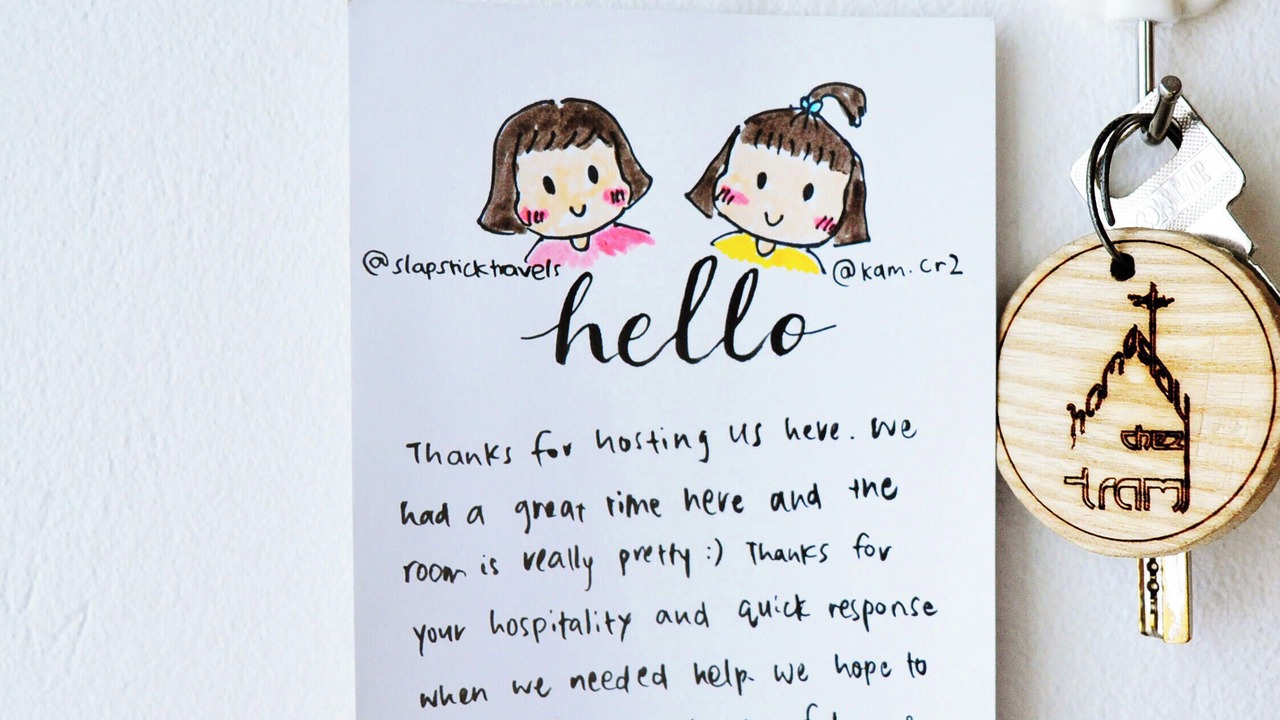 @slapsticktravels
@kam.cr2
hello
Thanks for hosting us here. We
had a great time here and the
room is really pretty :) Thanks for
your hospitality and quick response
when we needed help. We hope to
chez
tram